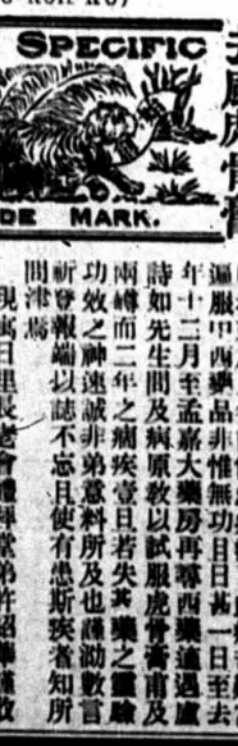 SPECIFIC
風虎骨膏
DE MARK.
遍服中西藥品非惟無功且日甚一日至去
年十二月至孟嘉大藥房再尋西藥適遇盧
詩如先生問及病原教以試服虎骨膏甫及
兩罇而二年之病疾壹旦若失其藥之靈驗
功效之神速誠非弟意料所及也謹泐數言
祈登報端以誌不忘且使有患斯疾者知所
問津焉
現寓日里長老會禮拜堂弟許紹